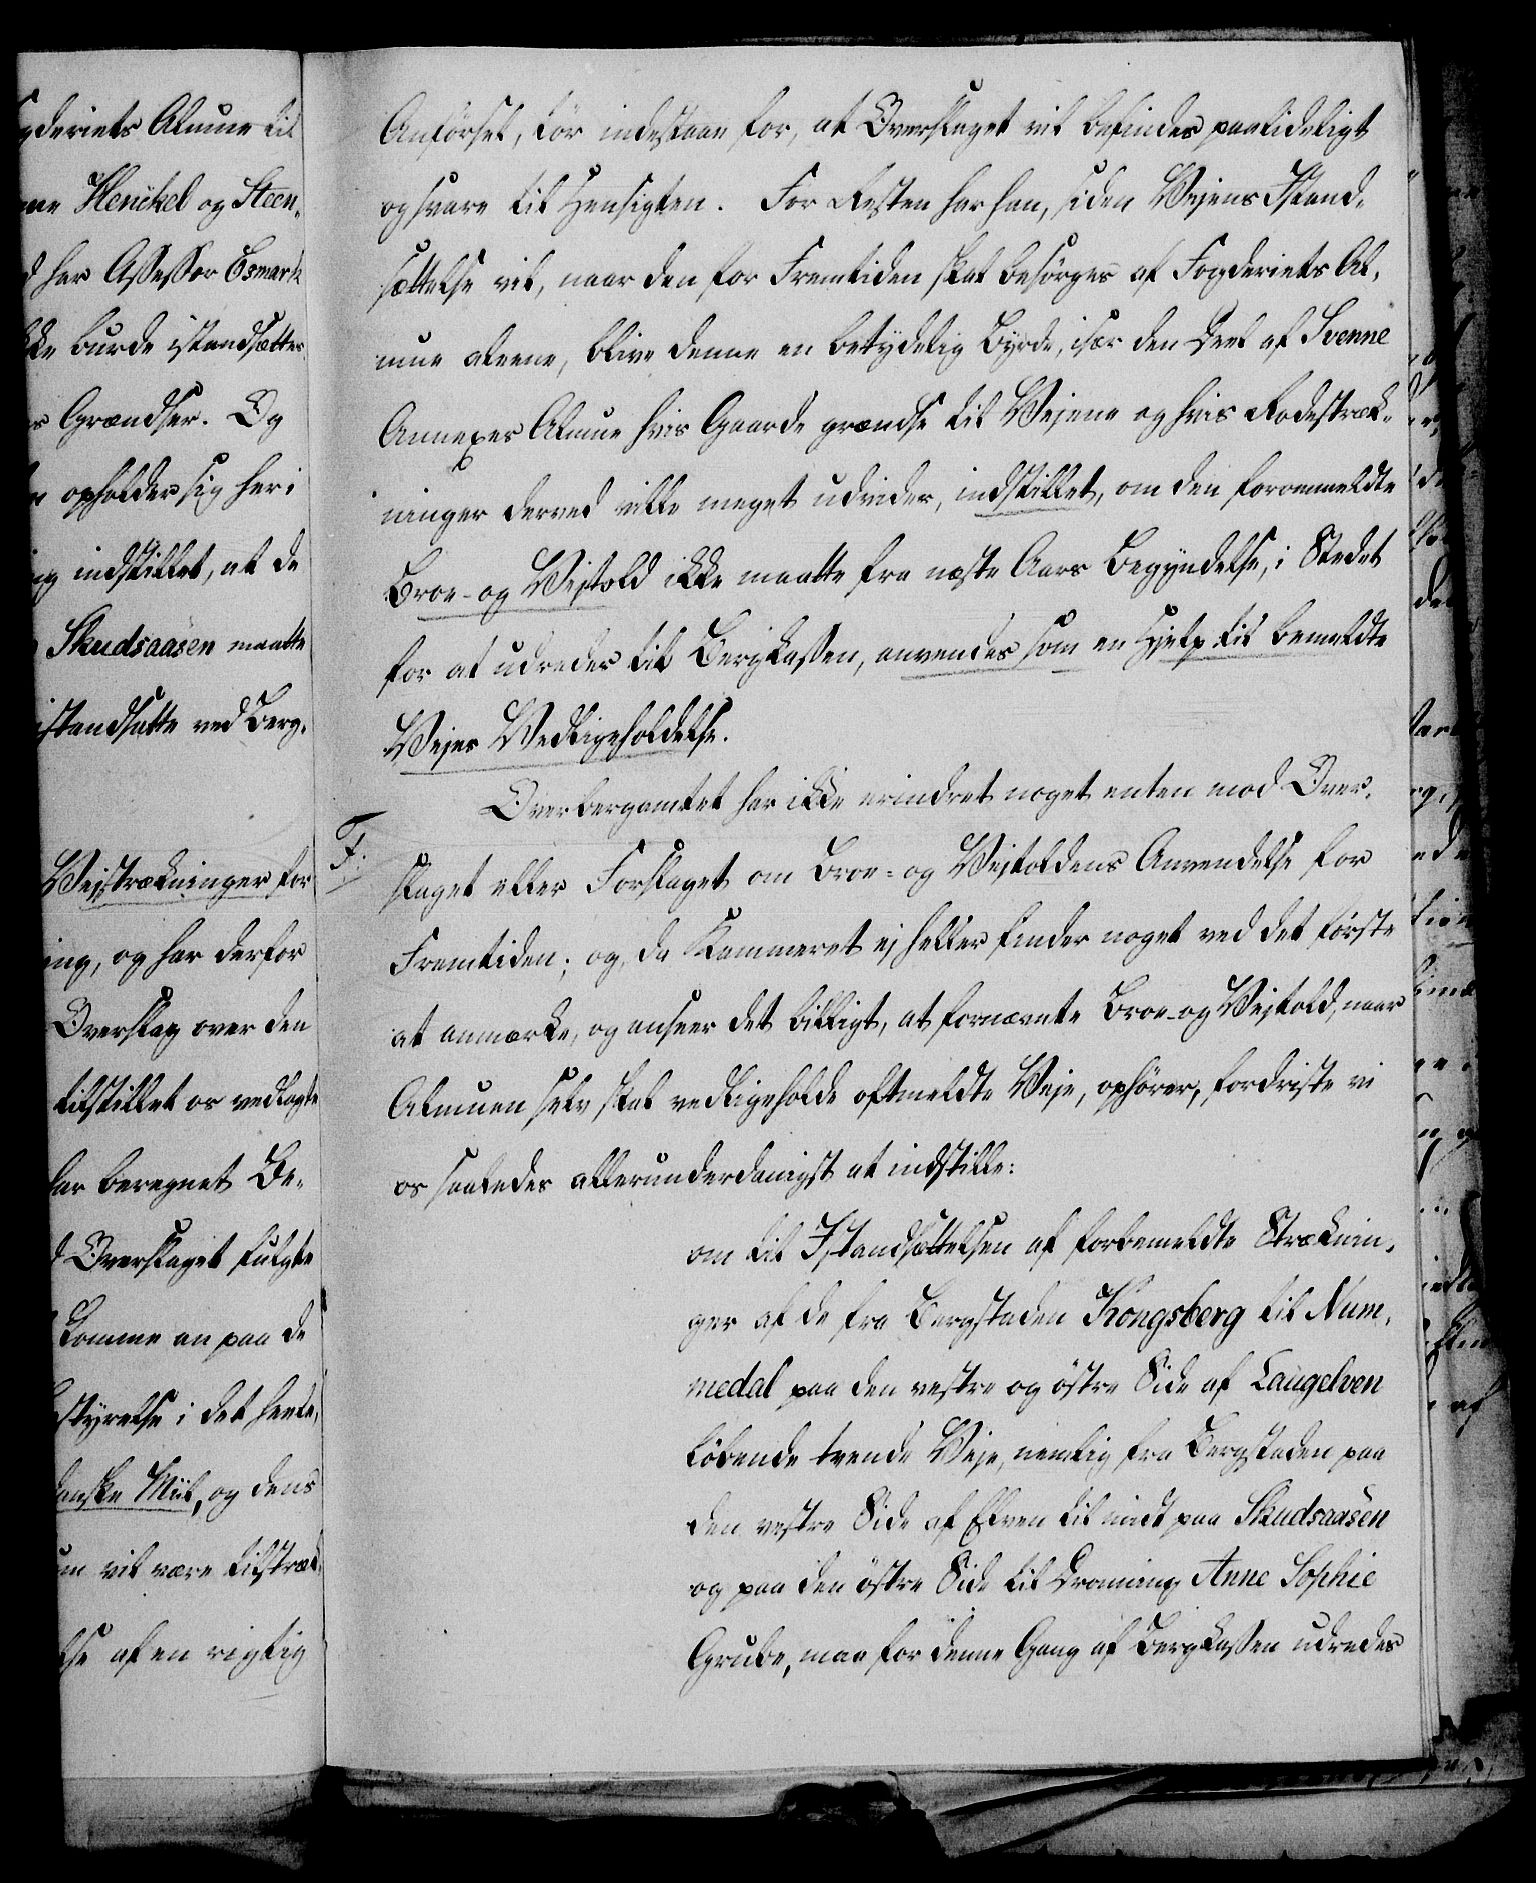 gderiets Almue til
ne Henckel og Steen,
d har Assessor Esmark
ke burde istandsættes
s Grændser. Og
opholder sig her i
ng indstillet, at de
Skudsaasen maatte
istandsatte ved Berg,
Vejstrækninger for
ing, og har derfor
Overslag over den
tilstillet os vedlagte
har beregnet Be,
d Overslaget fulgte
komme an paa de
styrelse i det heele,
danske Miil, og dens
m vil være tilstræk,
lse af en rigtig
Anförsel, tör indestaae for, at Overslaget vil befindes paalideligt
og svare til Hensigten. For Resten har han, siden Vejens Istand,
sættelse vil, naar den for Fremtiden skal besörges af Fogderiets Al,
mue aleene, blive denne en betydelig Byrde, især den Deel af Svenne
Annexes Almue hvis Gaarde grændse til Vejene og hvis Rodestræk,
ninger derved ville meget udvides, indstillet, om den forommeldte
Broe- og Vejtold ikke maatte fra næste Aars Begyndelse, i Stedet
for at udredes til Bergkassen, anvendes som en Hjelp til bemeldte
Vejes Vedligeholdelse.
Overbergamtet har ikke erindret noget enten mod Over,
F.
slaget eller Forslaget om Broe- og Vejtoldens Anvendelse for
Fremtiden; og, da Kammeret ej heller finder noget ved det förste
at anmærke, og anseer det billigt, at fornævnte Broe- og Vejtold, naar
Almuen selv skal vedligeholde oftmeldte Veje, ophörer, fordriste vi
os saaledes allerunderdanigst at indstille:
om til Istandsættelsen af forbemeldte Stræknin,
ger af de fra Bergstaden Kongsberg til Num,
medal paa den vestre og östre Side af Laugelven
löbende tvende Veje, nemlig fra Bergstaden paa
den vestre Side af Elven til midt paa Skudsaasen
og paa den östre Side til Dronning Anne Sophie
Grube, maa for denne Gang af Bergkassen udredes